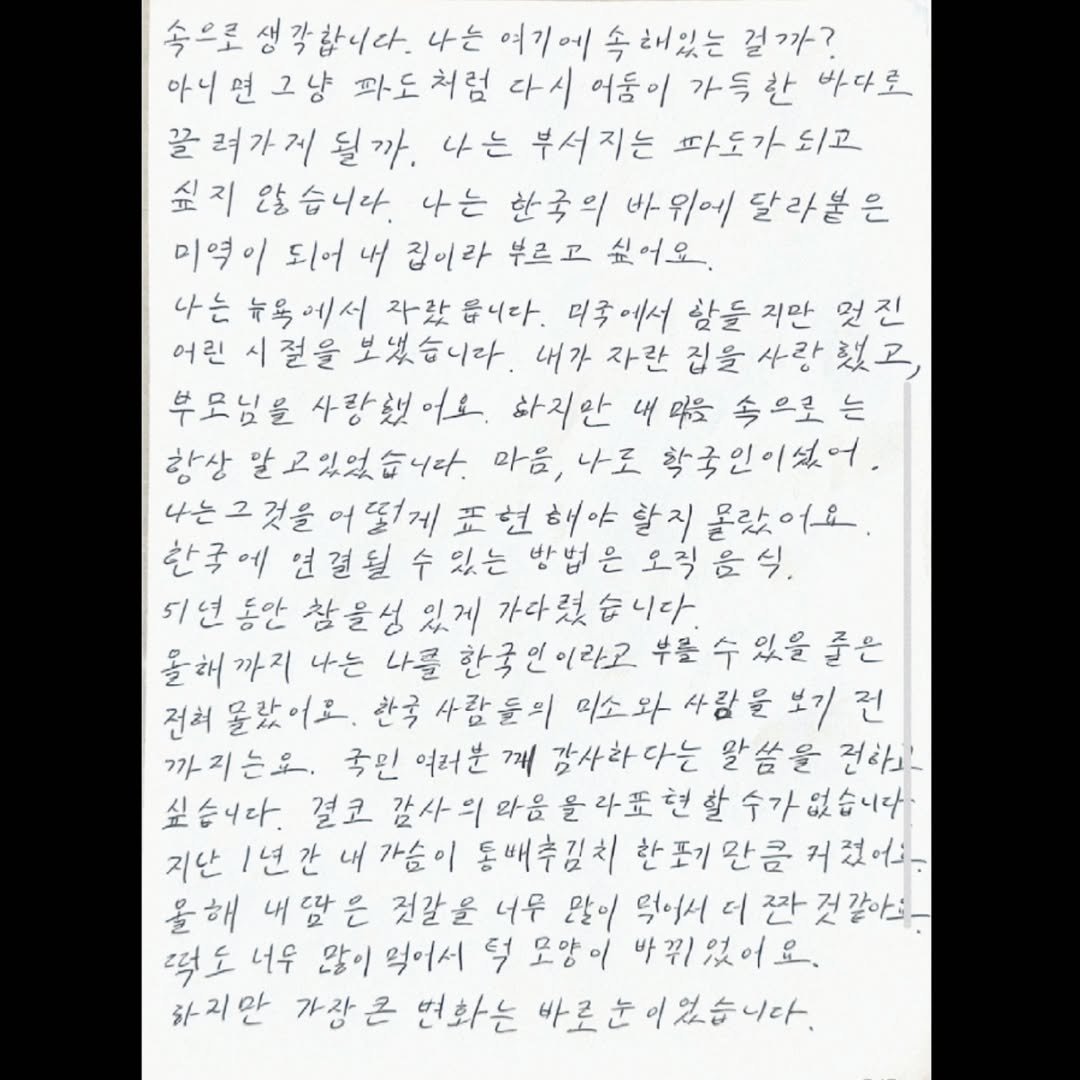 속으로 생각합니다. 나는 여기에 속해있는 걸까?
아니면 그냥 파도처럼 다시 어둠이 가득한 바다로
끌려가게 될까. 나는 부서지는 파도가 되고
싶지 않습니다. 나는 한국의 바위에 달라붙은
미역이 되어 내 집이라 부르고 싶어요.
나는 뉴욕에서 자랐읍니다. 미국에서 함들지만 멋진
어린 시절을 보냈습니다. 내가 자란 집을 사랑했고,
부모님을 사랑했어요. 하지만 내 마음 속으로는
항상 알고있었습니다. 마음, 나도 학국인이셨어.
나는 그것을 어떻게 표현해야 할지 몰랐어요.
한국에 연결될 수 있는 방법은 오직 음식.
51년 동안 참을성 있게 기다렸습니다.
올해까지 나는 나를 한국인이라고 부를 수 있을 줄은
전혀 몰랐어요. 한국 사람들의 미소와 사람을 보기 전
까지는요. 국민 여러분께 감사하다는 말씀을 전하고
싶습니다. 결코 감사의 마음을 라표현할 수가 없습니다.
지난 1년간 내 가슴이 통배추김치 한포기만큼 커졌어요.
올해 내 땀은 젓갈을 너무 많이 먹어서 더 짠 것같아요.
떡도 너무 많이 먹어서 턱 모양이 바뀌었어요.
하지만 가장 큰 변화는 바로 눈이었습니다.